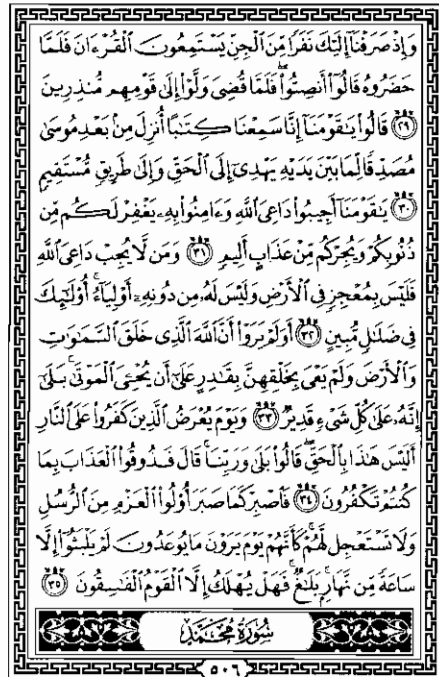 وَإِذْ صَرَفْنَآ إِلَيْكَ نَفَرًا مِّنَ ٱلْجِنِّ يَسْتَمِعُونَ ٱلْقُرْءَانَ فَلَمَّا
حَضَرُوهُ قَالُوٓا۟ أَنصِتُوا۟ۖ فَلَمَّا قُضِىَ وَلَّوْا۟ إِلَىٰ قَوْمِهِم مُّنذِرِينَ
٢٩ قَالُوا۟ يَٰقَوْمَنَآ إِنَّا سَمِعْنَا كِتَٰبًا أُنزِلَ مِنۢ بَعْدِ مُوسَىٰ
مُصَدِّقًا لِّمَا بَيْنَ يَدَيْهِ يَهْدِىٓ إِلَى ٱلْحَقِّ وَإِلَىٰ طَرِيقٍ مُّسْتَقِيمٍ
٣٠ يَٰقَوْمَنَآ أَجِيبُوا۟ دَاعِىَ ٱللَّهِ وَءَامِنُوا۟ بِهِۦ يَغْفِرْ لَكُم مِّن
ذُنُوبِكُمْ وَيُجِرْكُم مِّنْ عَذَابٍ أَلِيمٍ ٣١ وَمَن لَّا يُجِبْ دَاعِىَ ٱللَّهِ
فَلَيْسَ بِمُعْجِزٍ فِى ٱلْأَرْضِ وَلَيْسَ لَهُۥ مِن دُونِهِۦٓ أَوْلِيَآءُۚ أُو۟لَٰٓئِكَ
فِى ضَلَٰلٍ مُّبِينٍ ٣٢ أَوَلَمْ يَرَوْا۟ أَنَّ ٱللَّهَ ٱلَّذِى خَلَقَ ٱلسَّمَٰوَٰتِ
وَٱلْأَرْضَ وَلَمْ يَعْىَ بِخَلْقِهِنَّ بِقَٰدِرٍ عَلَىٰٓ أَن يُحْـِۧىَ ٱلْمَوْتَىٰۚ بَلَىٰٓ
إِنَّهُۥ عَلَىٰ كُلِّ شَىْءٍ قَدِيرٌ ٣٣ وَيَوْمَ يُعْرَضُ ٱلَّذِينَ كَفَرُوا۟ عَلَى ٱلنَّارِ
أَلَيْسَ هَٰذَا بِٱلْحَقِّۖ قَالُوا۟ بَلَىٰ وَرَبِّنَاۚ قَالَ فَذُوقُوا۟ ٱلْعَذَابَ بِمَا
كُنتُمْ تَكْفُرُونَ ٣٤ فَٱصْبِرْ كَمَا صَبَرَ أُو۟لُوا۟ ٱلْعَزْمِ مِنَ ٱلرُّسُلِ
وَلَا تَسْتَعْجِل لَّهُمْۚ كَأَنَّهُمْ يَوْمَ يَرَوْنَ مَا يُوعَدُونَ لَمْ يَلْبَثُوٓا۟ إِلَّا
سَاعَةً مِّن نَّهَارٍۭۚ بَلَٰغٌۚ فَهَلْ يُهْلَكُ إِلَّا ٱلْقَوْمُ ٱلْفَٰسِقُونَ ٣٥
سُورَةُ مُحَمَّدٍ
٥٠٦